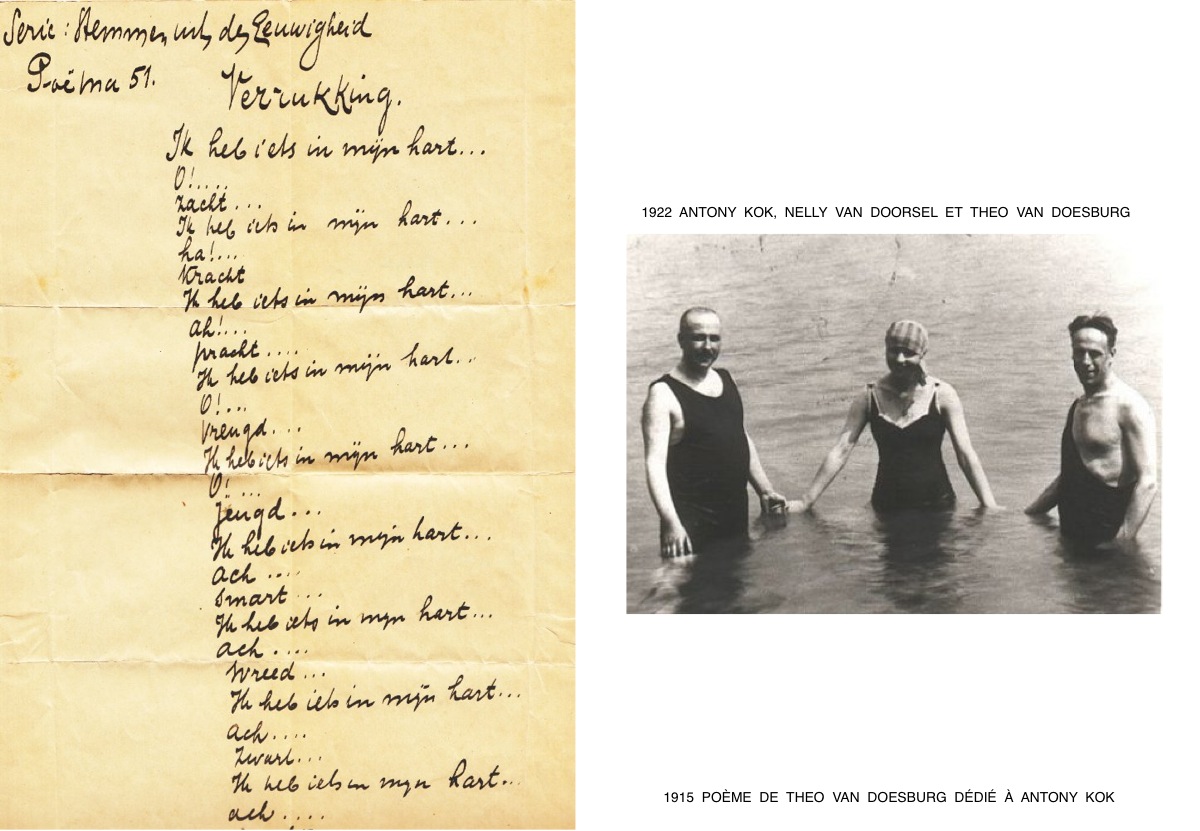 Serie: Stemmen uit de Eeuwigheid
Poëma 51.
Verrukking.
Ik heb iets in mijn hart...
O!....
zacht...
Ik heb iets in mijn hart...
ha!...
Kracht
Ik heb iets in mijn hart...
ah!...
pracht....
Ik heb iets in mijn hart...
O!...
Vreugd...
Ik heb iets in mijn hart...
O! ...
Jeugd...
Ik heb iets in mijn hart...
ach ....
Smart ...
Ik heb iets in mijn hart...
ach ....
Wreed ...
Ik heb iets in mijn hart...
ach....
Zwart...
Ik heb iets in mijn hart...
ach....
1922 ANTONY KOK, NELLY VAN DOORSEL ET THEO VAN DOESBURG
1915 POÈME DE THEO VAN DOESBURG DÉDIÉ À ANTONY KOK